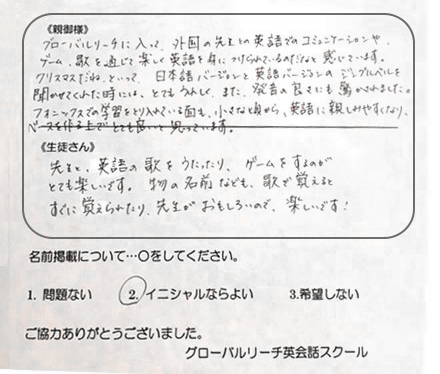 《親御様》
グローバルリーチに入って、外国の先生との英語でのコミュニケーションや、
ゲーム、歌を通じて楽しく英語を身につけられているのだなと感じています。
クリスマスだね、といって、日本語バージョンと英語バージョンのジングルベルを
聞かせてくれた時には、とてもうれしく、また、発音の良さにも驚かされました。
フォニックスでの学習をとり入れている面も、小さな頃から、英語に親しみやすくなり、
ベースを作る上でとても良いと思っています。
《生徒さん》
先生と、英語の歌をうたったり、ゲームをするのが
とても楽しいです。物の名前なども、歌で覚えると
すぐに覚えられたり、先生がおもしろいので、楽しいです!
名前掲載について…〇をしてください。
1. 問題ない 2. イニシャルならよい 3.希望しない
ご協力ありがとうございました。
グローバルリーチ英会話スクール